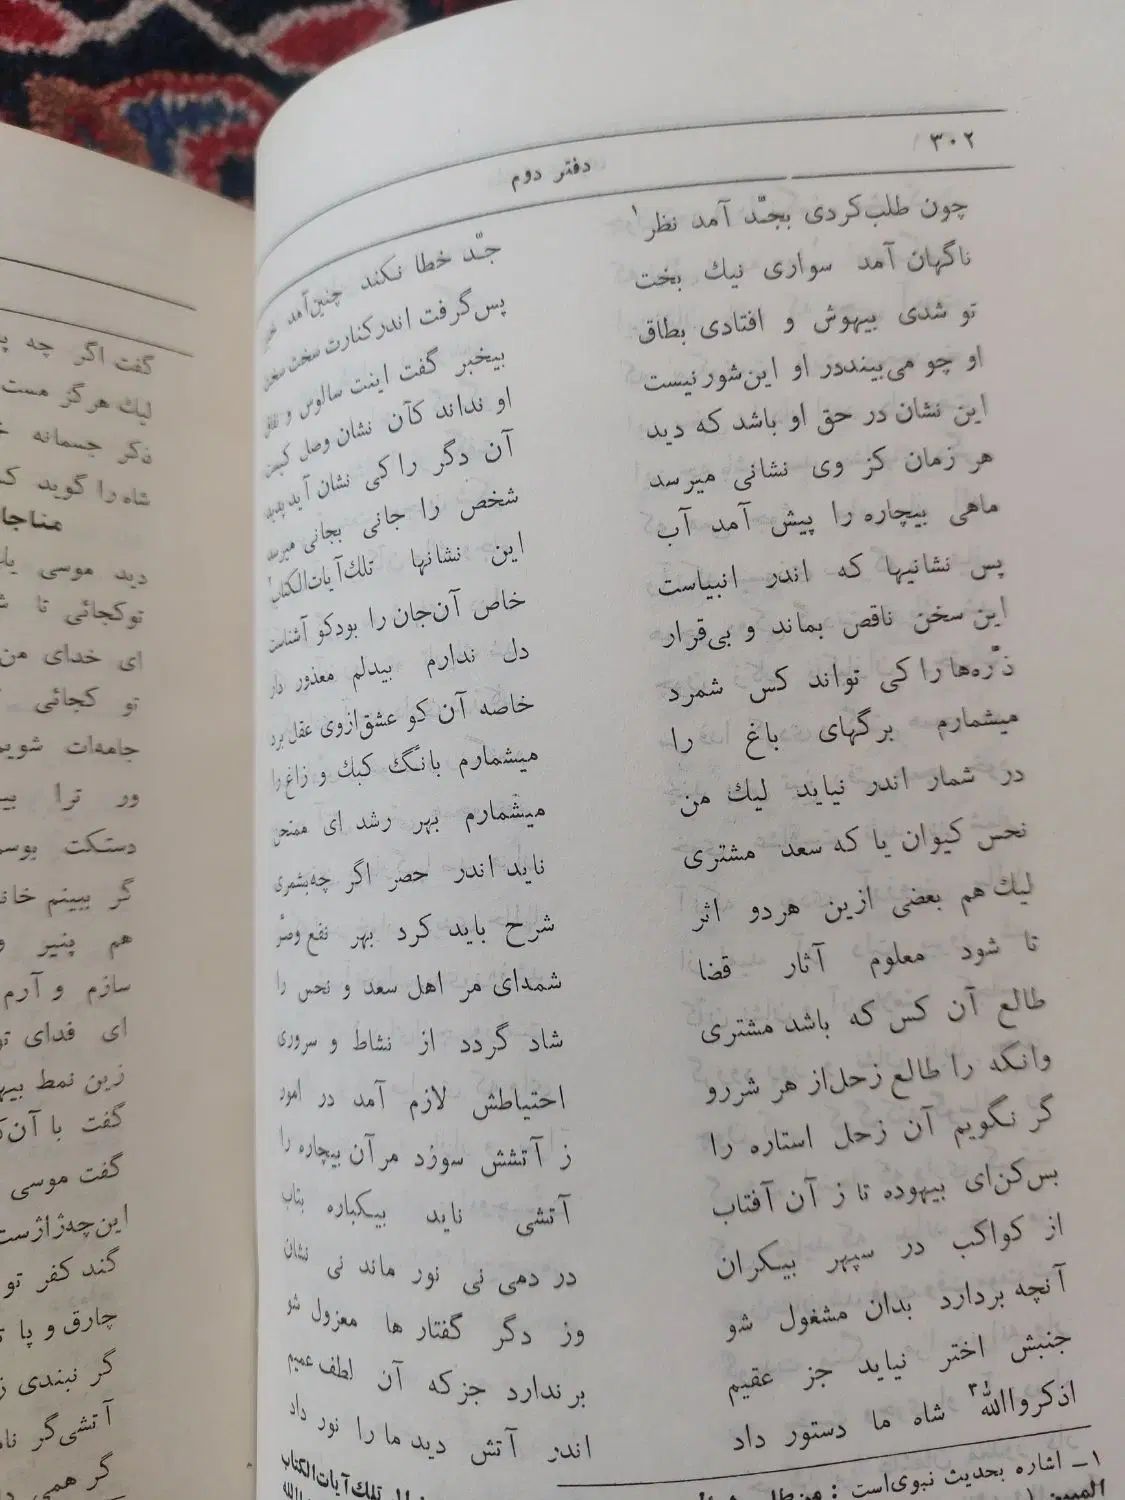 ۳۰۲
دفتر دوم
چون طلب‌کردی بجـّد آمد نظر۱ جـّد خطا نکند چنین‌آمد
ناگهان آمد سواری نیك بخت پس‌گرفت اندرکنارت سخت سخت
تو شدی بیهوش و افتادی بطاق بیخبر گفت اینت سالوس و نفاق
او چو می‌بینددر او این‌شورنیست او نداند کآن نشان وصل کیست
این نشان در حق او باشد که دید آن دگر راکی نشان آیدپدید
هر زمان کز وی نشانی میرسد شخص را جانی بجانی میرسد
ماهی بیچاره را پیش آمد آب این نشانیها تلك‌آیات‌الکتاب۲
پس نشانیها که اندر انبیاست خاص آن‌جان را بودکو آشناست
این سخن ناقص بماند و بی‌قرار دل ندارم بیدلم معذور دار
ذرّه‌ها را کی تواند کس شمرد خاصه آن کو عشق‌ازوی عقل برد
میشمارم برگهای باغ را میشمارم بانگ کبك و زاغ را
در شمار اندر نیاید لیك من میشمارم بهر رشد ای ممتحن
نحس کیوان یا که سعد مشتری ناید اندر حصر اگر چه‌بشمری
لیك هم بعضی ازین هردو اثر شرح باید کرد بهر نفع وضرّ
تا شود معلوم آثار قضا شمه‌ای مر اهل سعد و نحس را
طالع آن کس که باشد مشتری شاد گردد از نشاط و سروری
وانکه را طالع زحل‌از هر شررو احتیاطش لازم آمد در امور
گر نگویم آن زحل استاره را ز آتشش سوزد مرآن بیچاره را
بس‌کن‌ای بیهوده تا ز آن آفتاب آتشی ناید بیکباره بتاب
از کواکب در سپهر بیکران در دمی نی نور ماند نی نشان
آنچه بردارد بدان مشغول شو وز دگر گفتار ها معزول شو
جنبش اختر نیاید جز عقیم بر ندارد جز که آن لطف عمیم
اذکرواالله۳ شاه ما دستور داد اندر آتش دید ما را نور داد
۱ـ اشاره بحدیث نبوی‌است :
تلك‌آیات‌الکتاب
المبین
گفت اگر چه
لیك هرگز مست
ذکر جسمانه
شاه را گوید
دید موسی
توکجائی تا
ای خدای من
تو کجائی
جامه‌ات شویم
ور ترا
دستکت بوسم
گر ببینم
هم پنیر و
سازم و آرم
ای فدای تو
زین نمط
گفت با آن
گفت موسی
این‌چه‌ژاژست
گند کفر تو
چارق و پا
گر نبندی
آتشی‌گر
گر همی